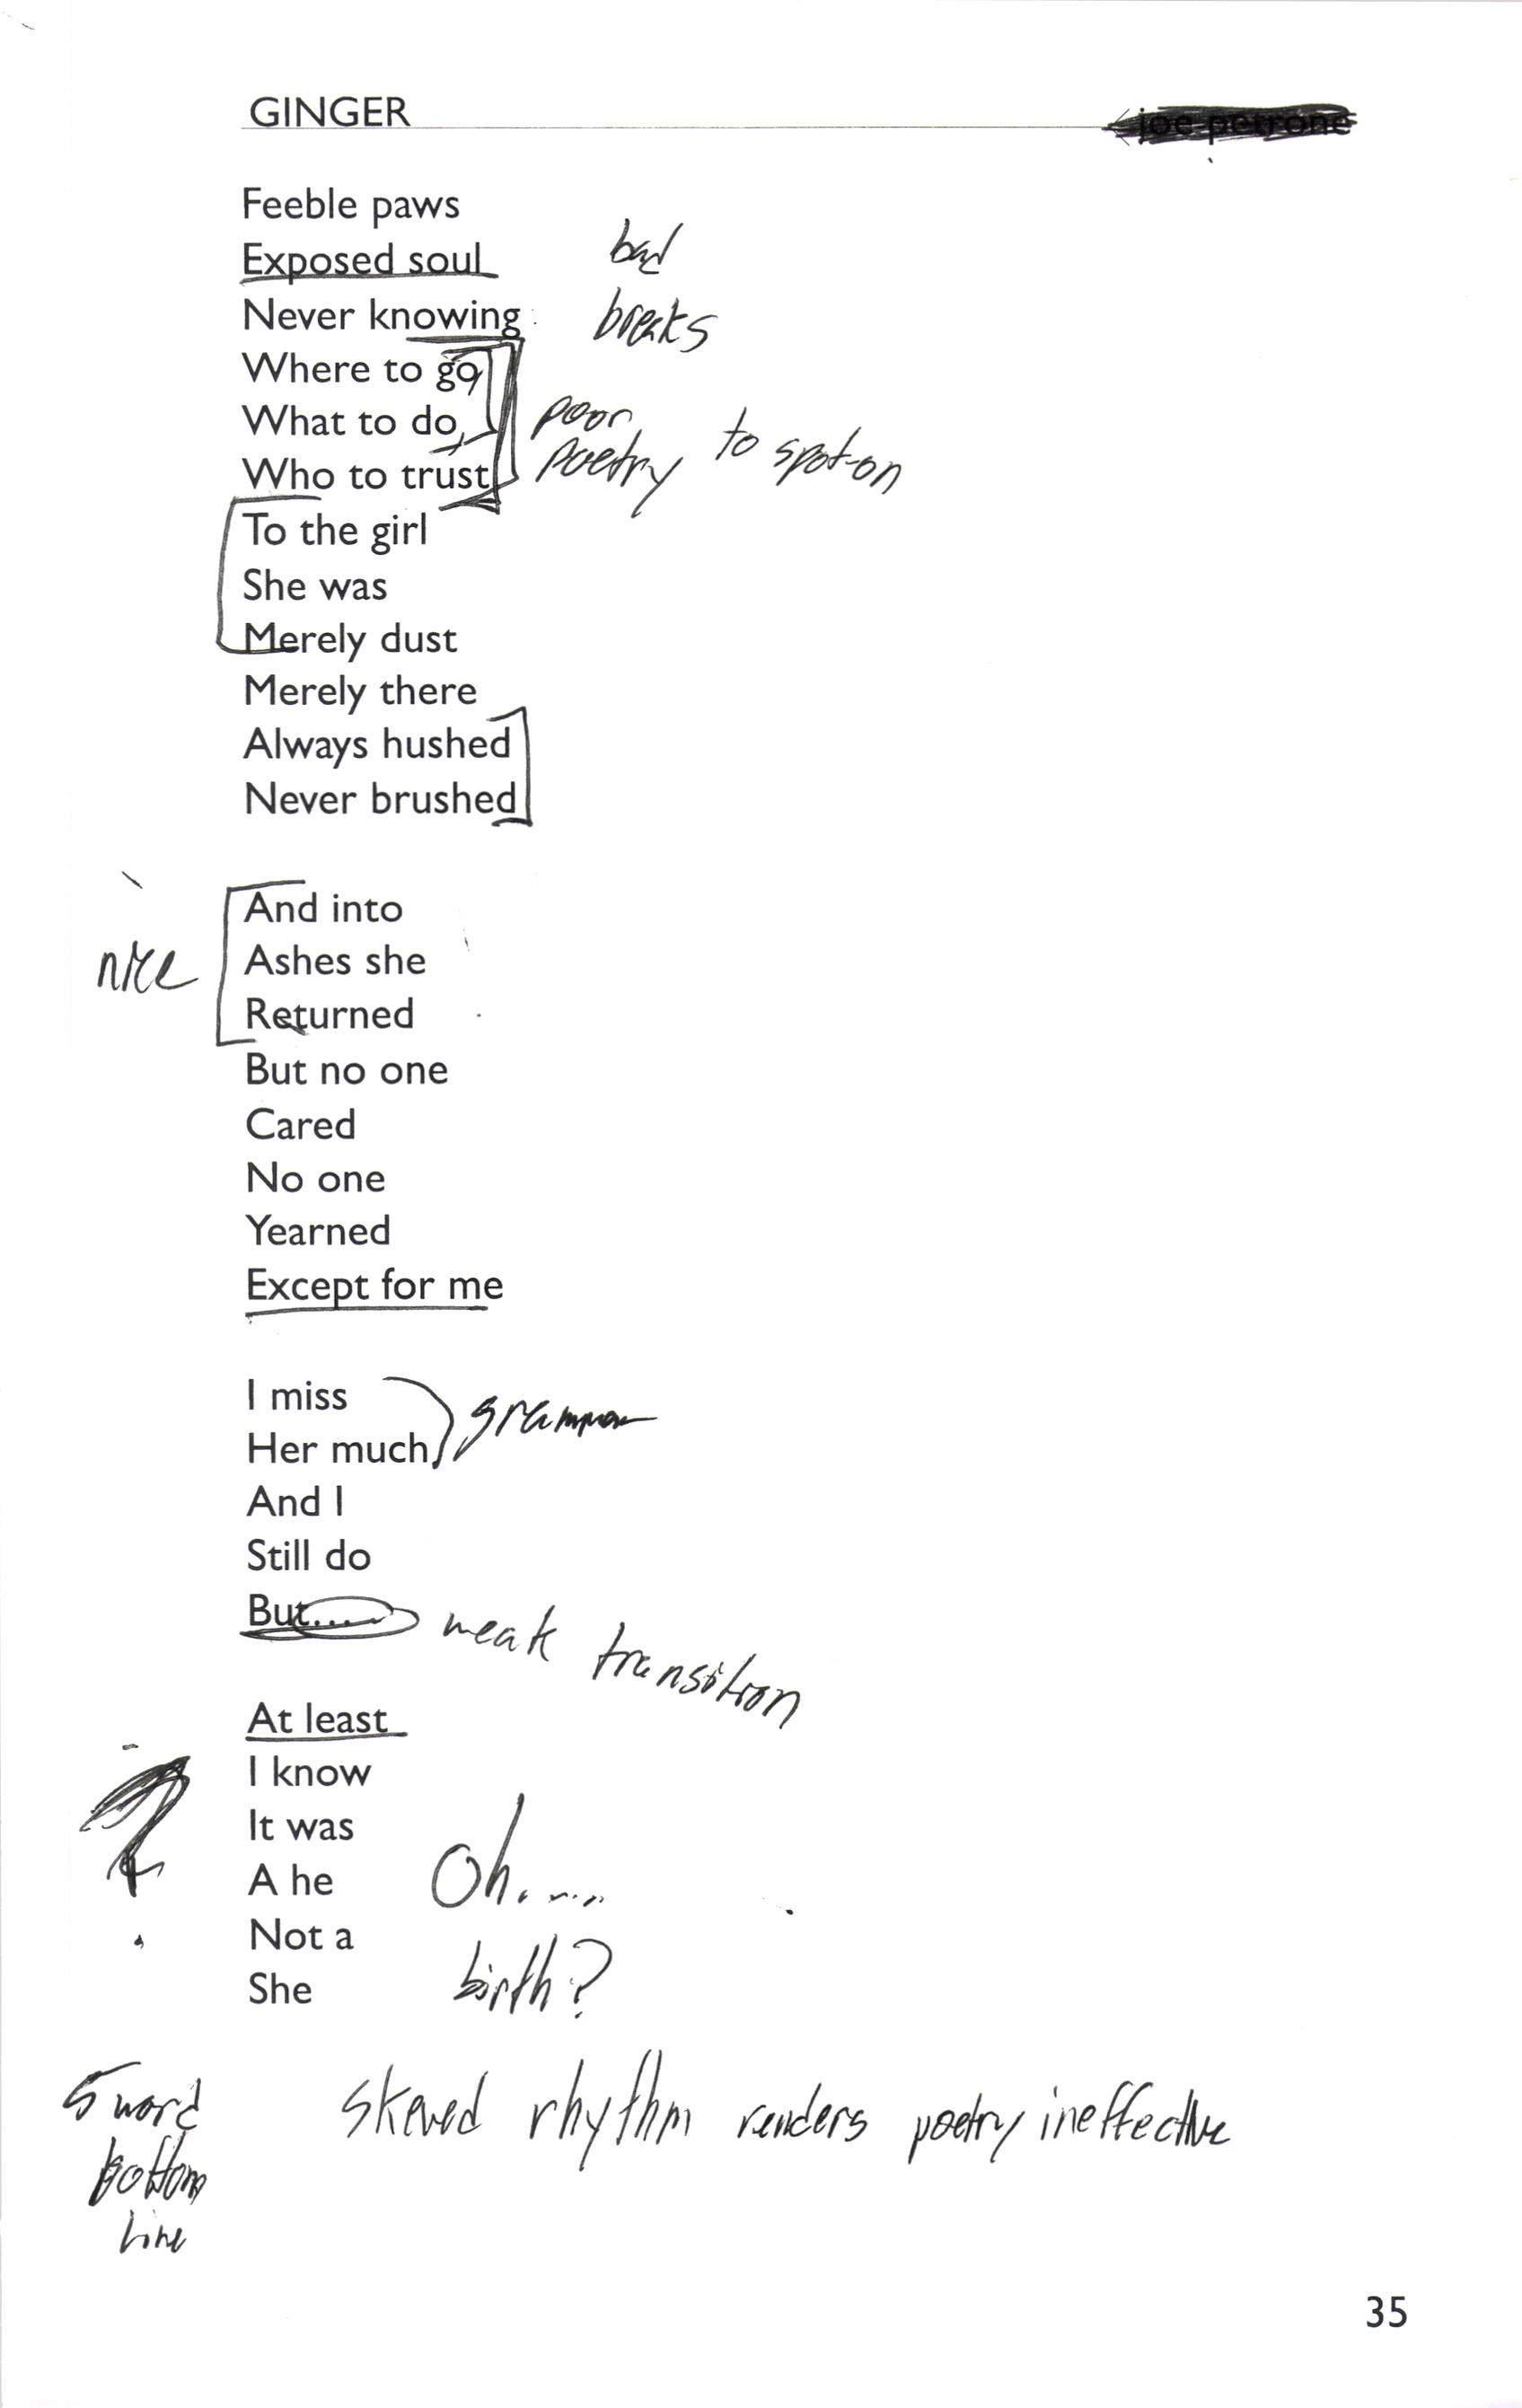 GINGER
joe petrone
Feeble paws
Exposed soul
bad
Never knowing
breaks
Where to go,
What to do,
poor
Who to trust
poetry to spot-on
To the girl
She was
Merely dust
Merely there
Always hushed
Never brushed
And into
nice
Ashes she
Returned
But no one
Cared
No one
Yearned
Except for me
I miss
Her much,
grammar
And I
Still do
But....
weak transition
At least
I know
It was
?
A he
Oh.....
Not a
She
birth?
5 word
bottom
line
skewed rhythm renders poetry ineffective
35